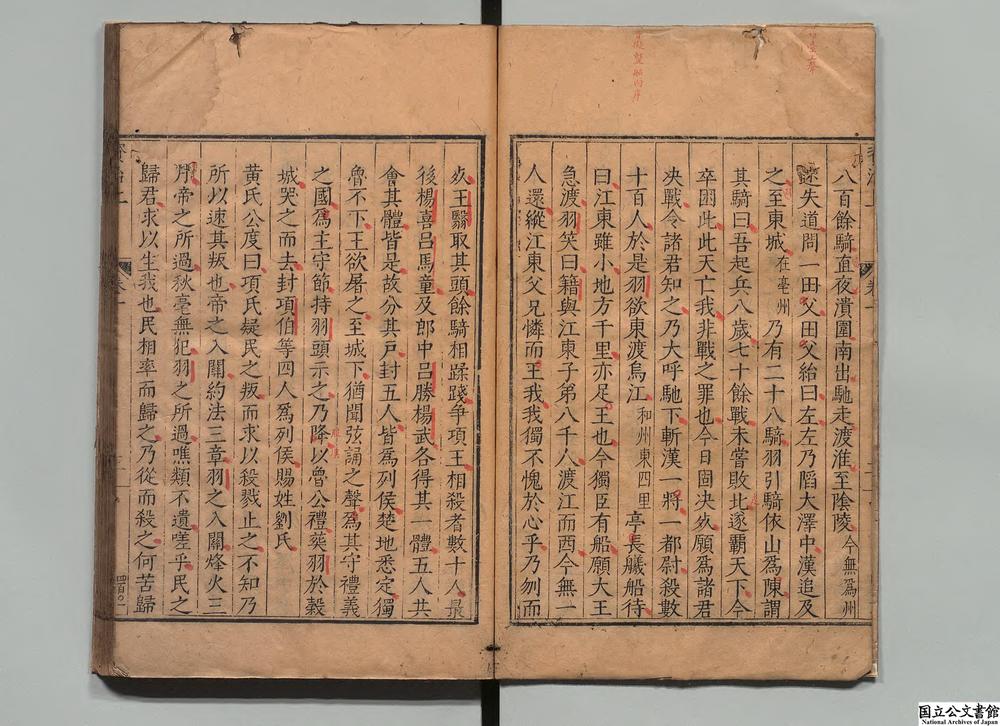 八百餘騎直夜潰圍南出馳走渡淮至陰陵今無爲州
迷失道問一田父田父紿曰左左乃䧟大澤中漢追及
之至東城在亳州乃有二十八騎羽引騎依山爲陳謂
其騎曰吾起兵八歲七十餘戰未嘗敗北遂覇天下今
卒困此此天亡我非戰之罪也今日固决死願爲諸君
决戰令諸君知之乃大呼馳下斬漢一將一都尉殺數
十百人於是羽欲東渡烏江和州東四里亭長艤船待
曰江東雖小地方千里亦足王也今獨臣有船願大王
急渡羽笑曰籍與江東子弟八千人渡江而西今無一
人還縱江東父兄憐而王我我獨不愧於心乎乃刎而
死王翳取其頭餘騎相蹂踐争項王相殺者數十人最
後楊喜吕馬童及郎中吕勝楊武各得其一體五人共
會其體皆是故分其戸封五人皆爲列侯楚地悉定獨
魯不下王欲屠之至城下猶聞弦誦之聲爲其守禮義
之國爲主守節持羽頭示之乃降以魯公禮葬羽於穀
城哭之而去封項伯等四人爲列侯賜姓劉氏
黄氏公度曰項氏疑民之叛而求以殺戮止之不知乃
所以速其叛也帝之入關約法三章羽之入關烽火三
月帝之所過秋毫無犯羽之所過噍類不遺嗟乎民之
歸君求以生我也民相率而歸之乃從而殺之何苦歸
国立公文書館
National Archives of Japan